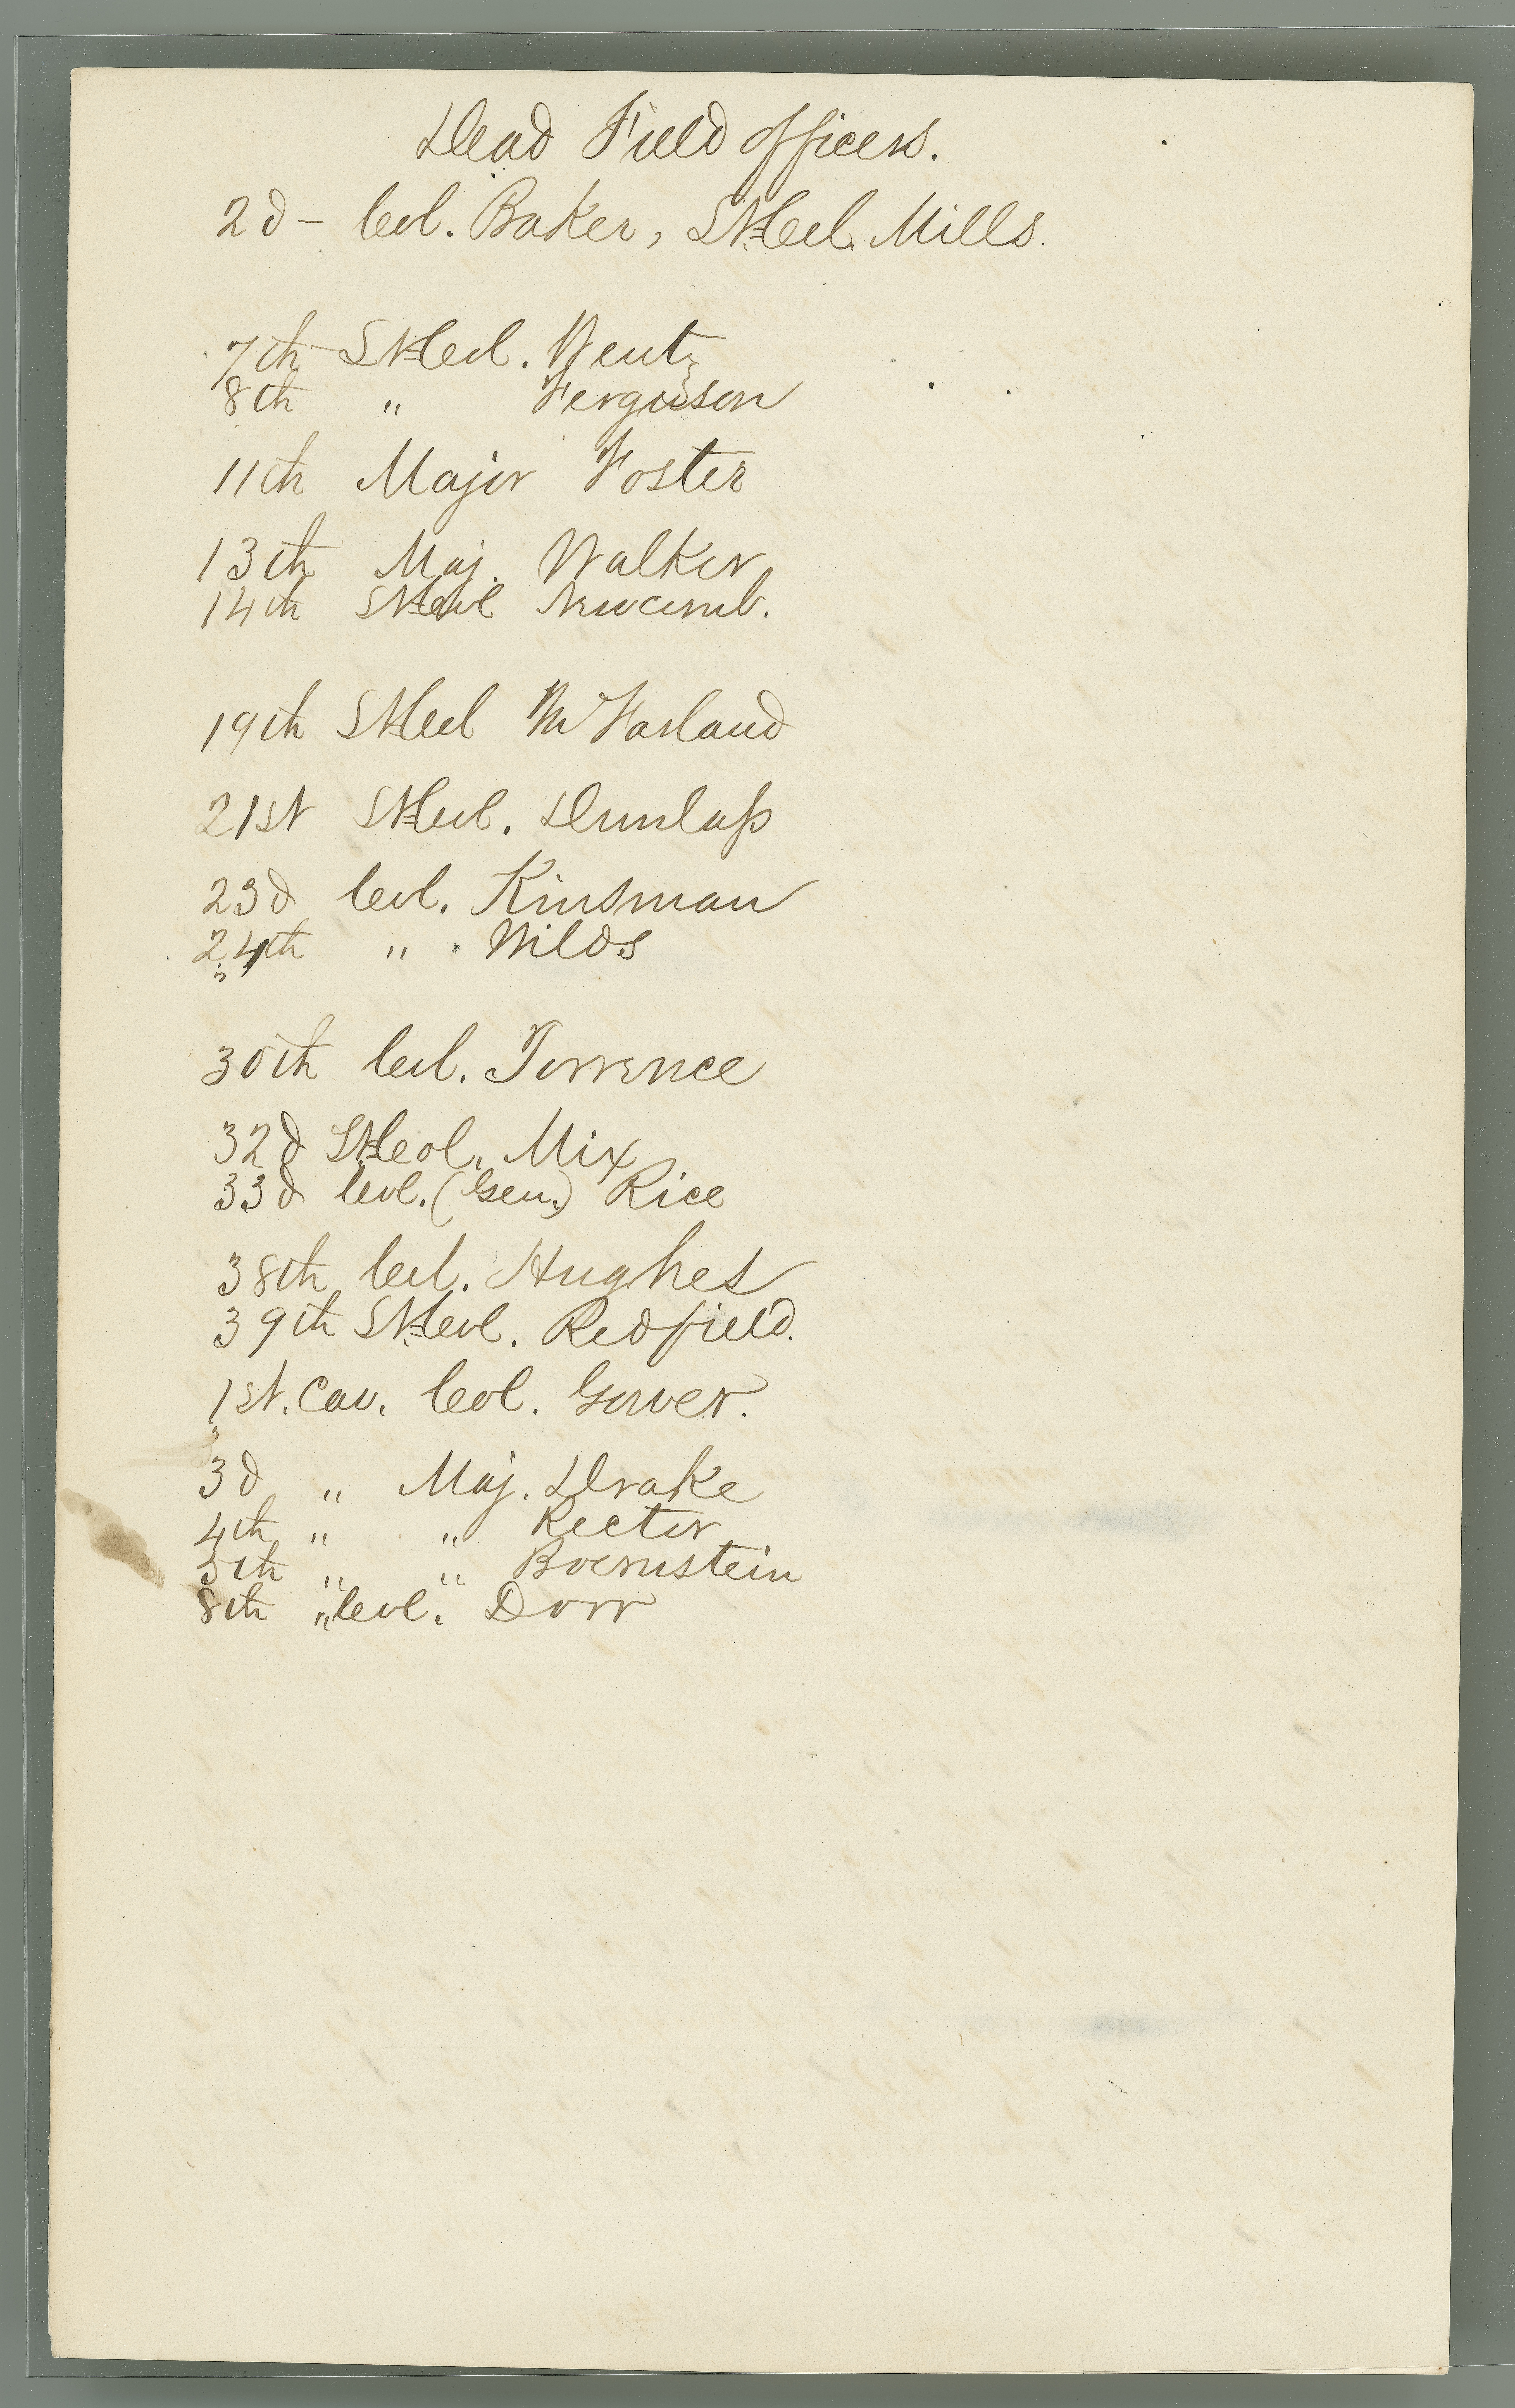 Dead Field officers.
2d – Col. Baker, Lt Col. Mills.
7th Lt Col. Wentz
8th " Ferguson
11th Major Foster
13th Maj. Walker
14th Lt Col Newcomb.
19th Lt Col McFarland
21st Lt Col. Dunlap
23d Col. Kinsman
24th " Wilds
30th Col. Torrence
32d Lt Col. Mix
33d Col. (Gen.) Rice
38th Col. Hughes
39th Lt Col. Redfield.
1st. Cav. Col. Gower.
3d " Maj. Drake
4th " " Rector
5th " " Boernstein
8th " Col. " Dorr